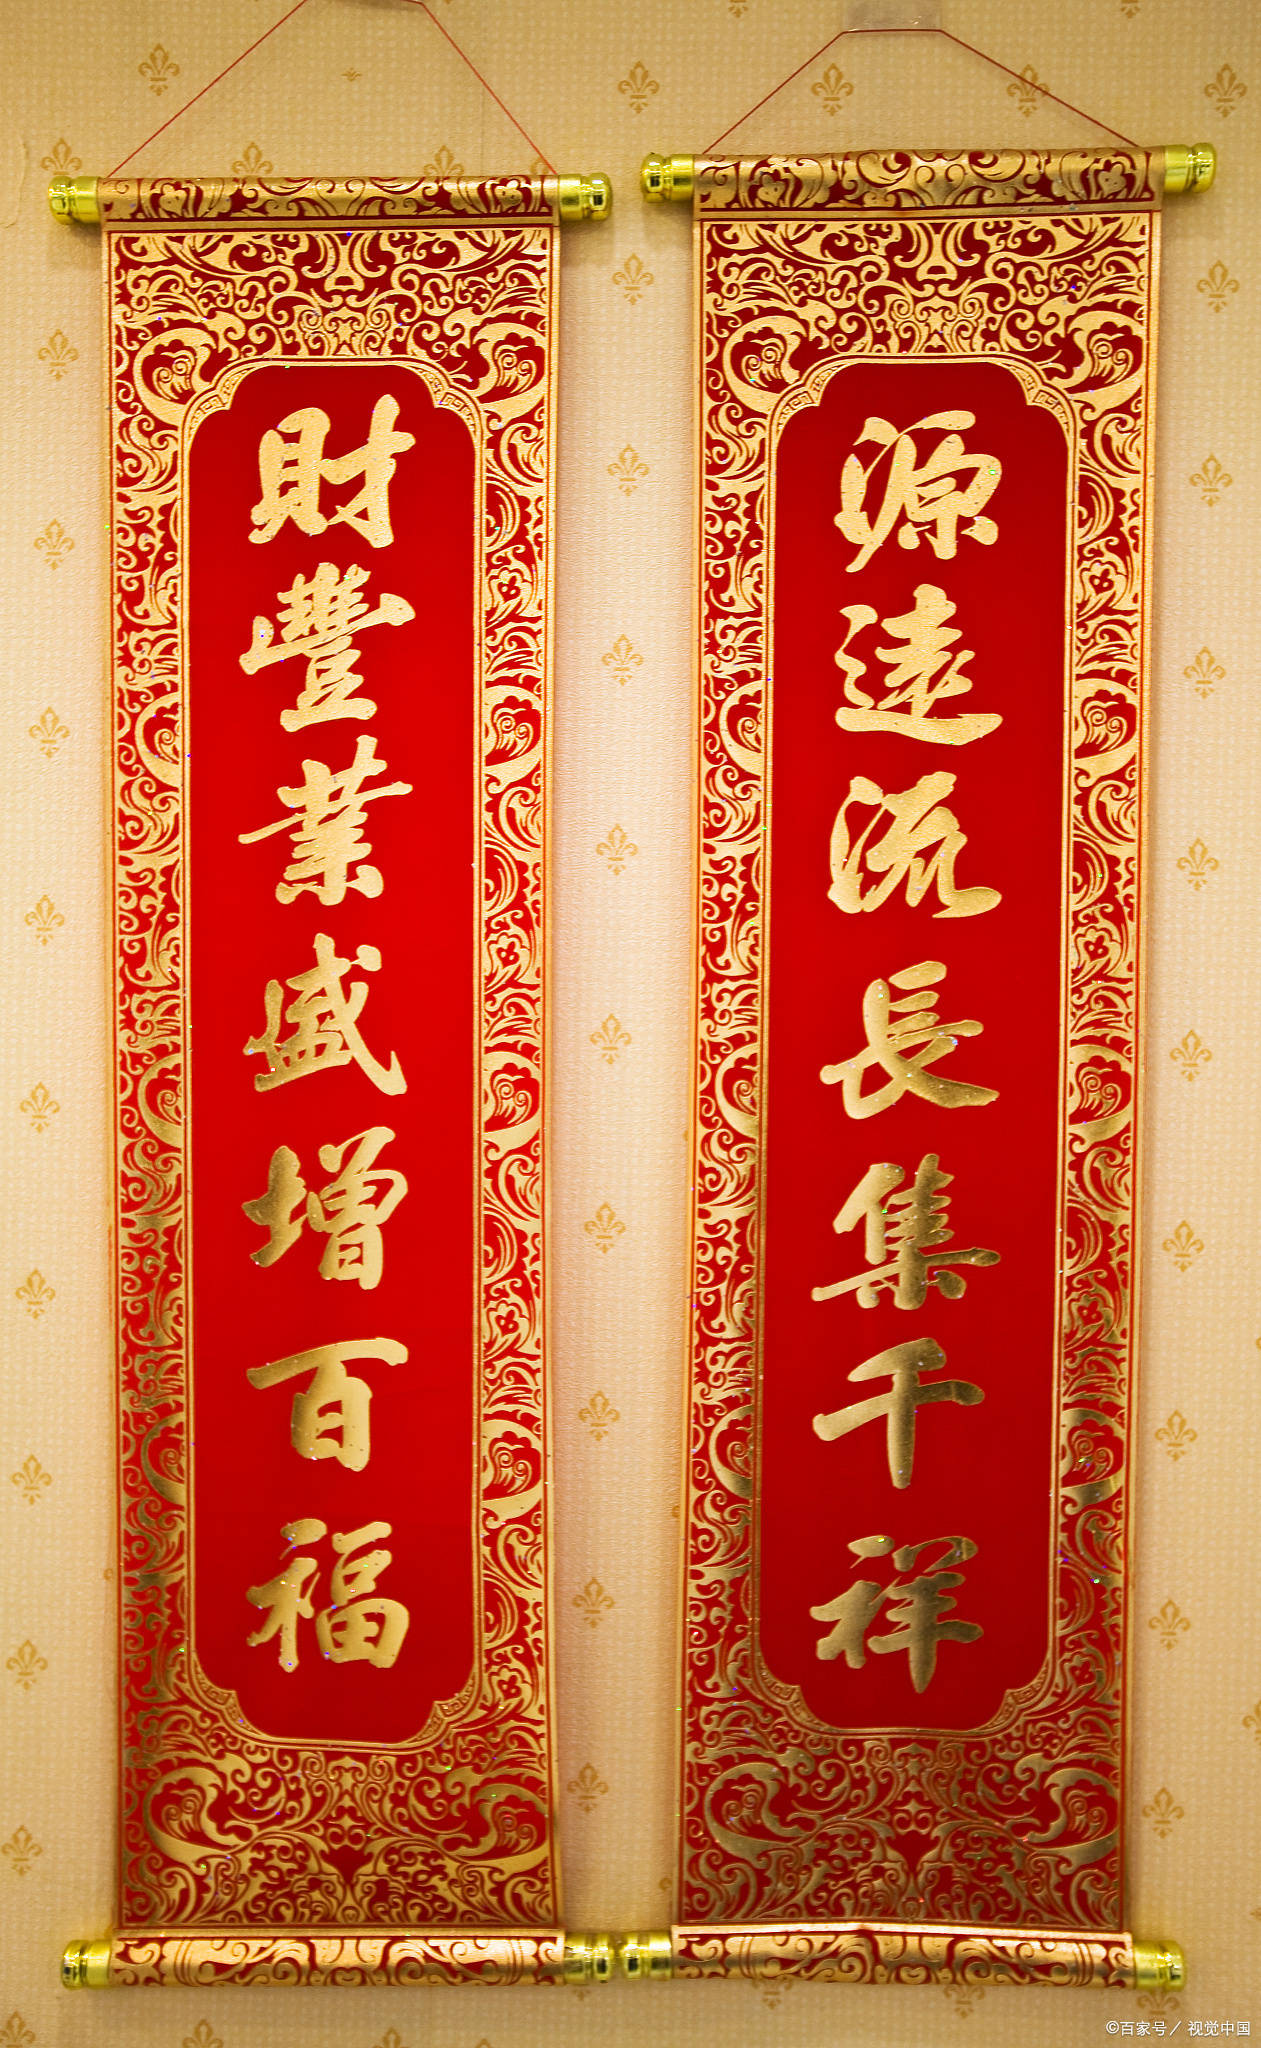 源遠流長集千祥
財豐業盛增百福
©百家号／视觉中国